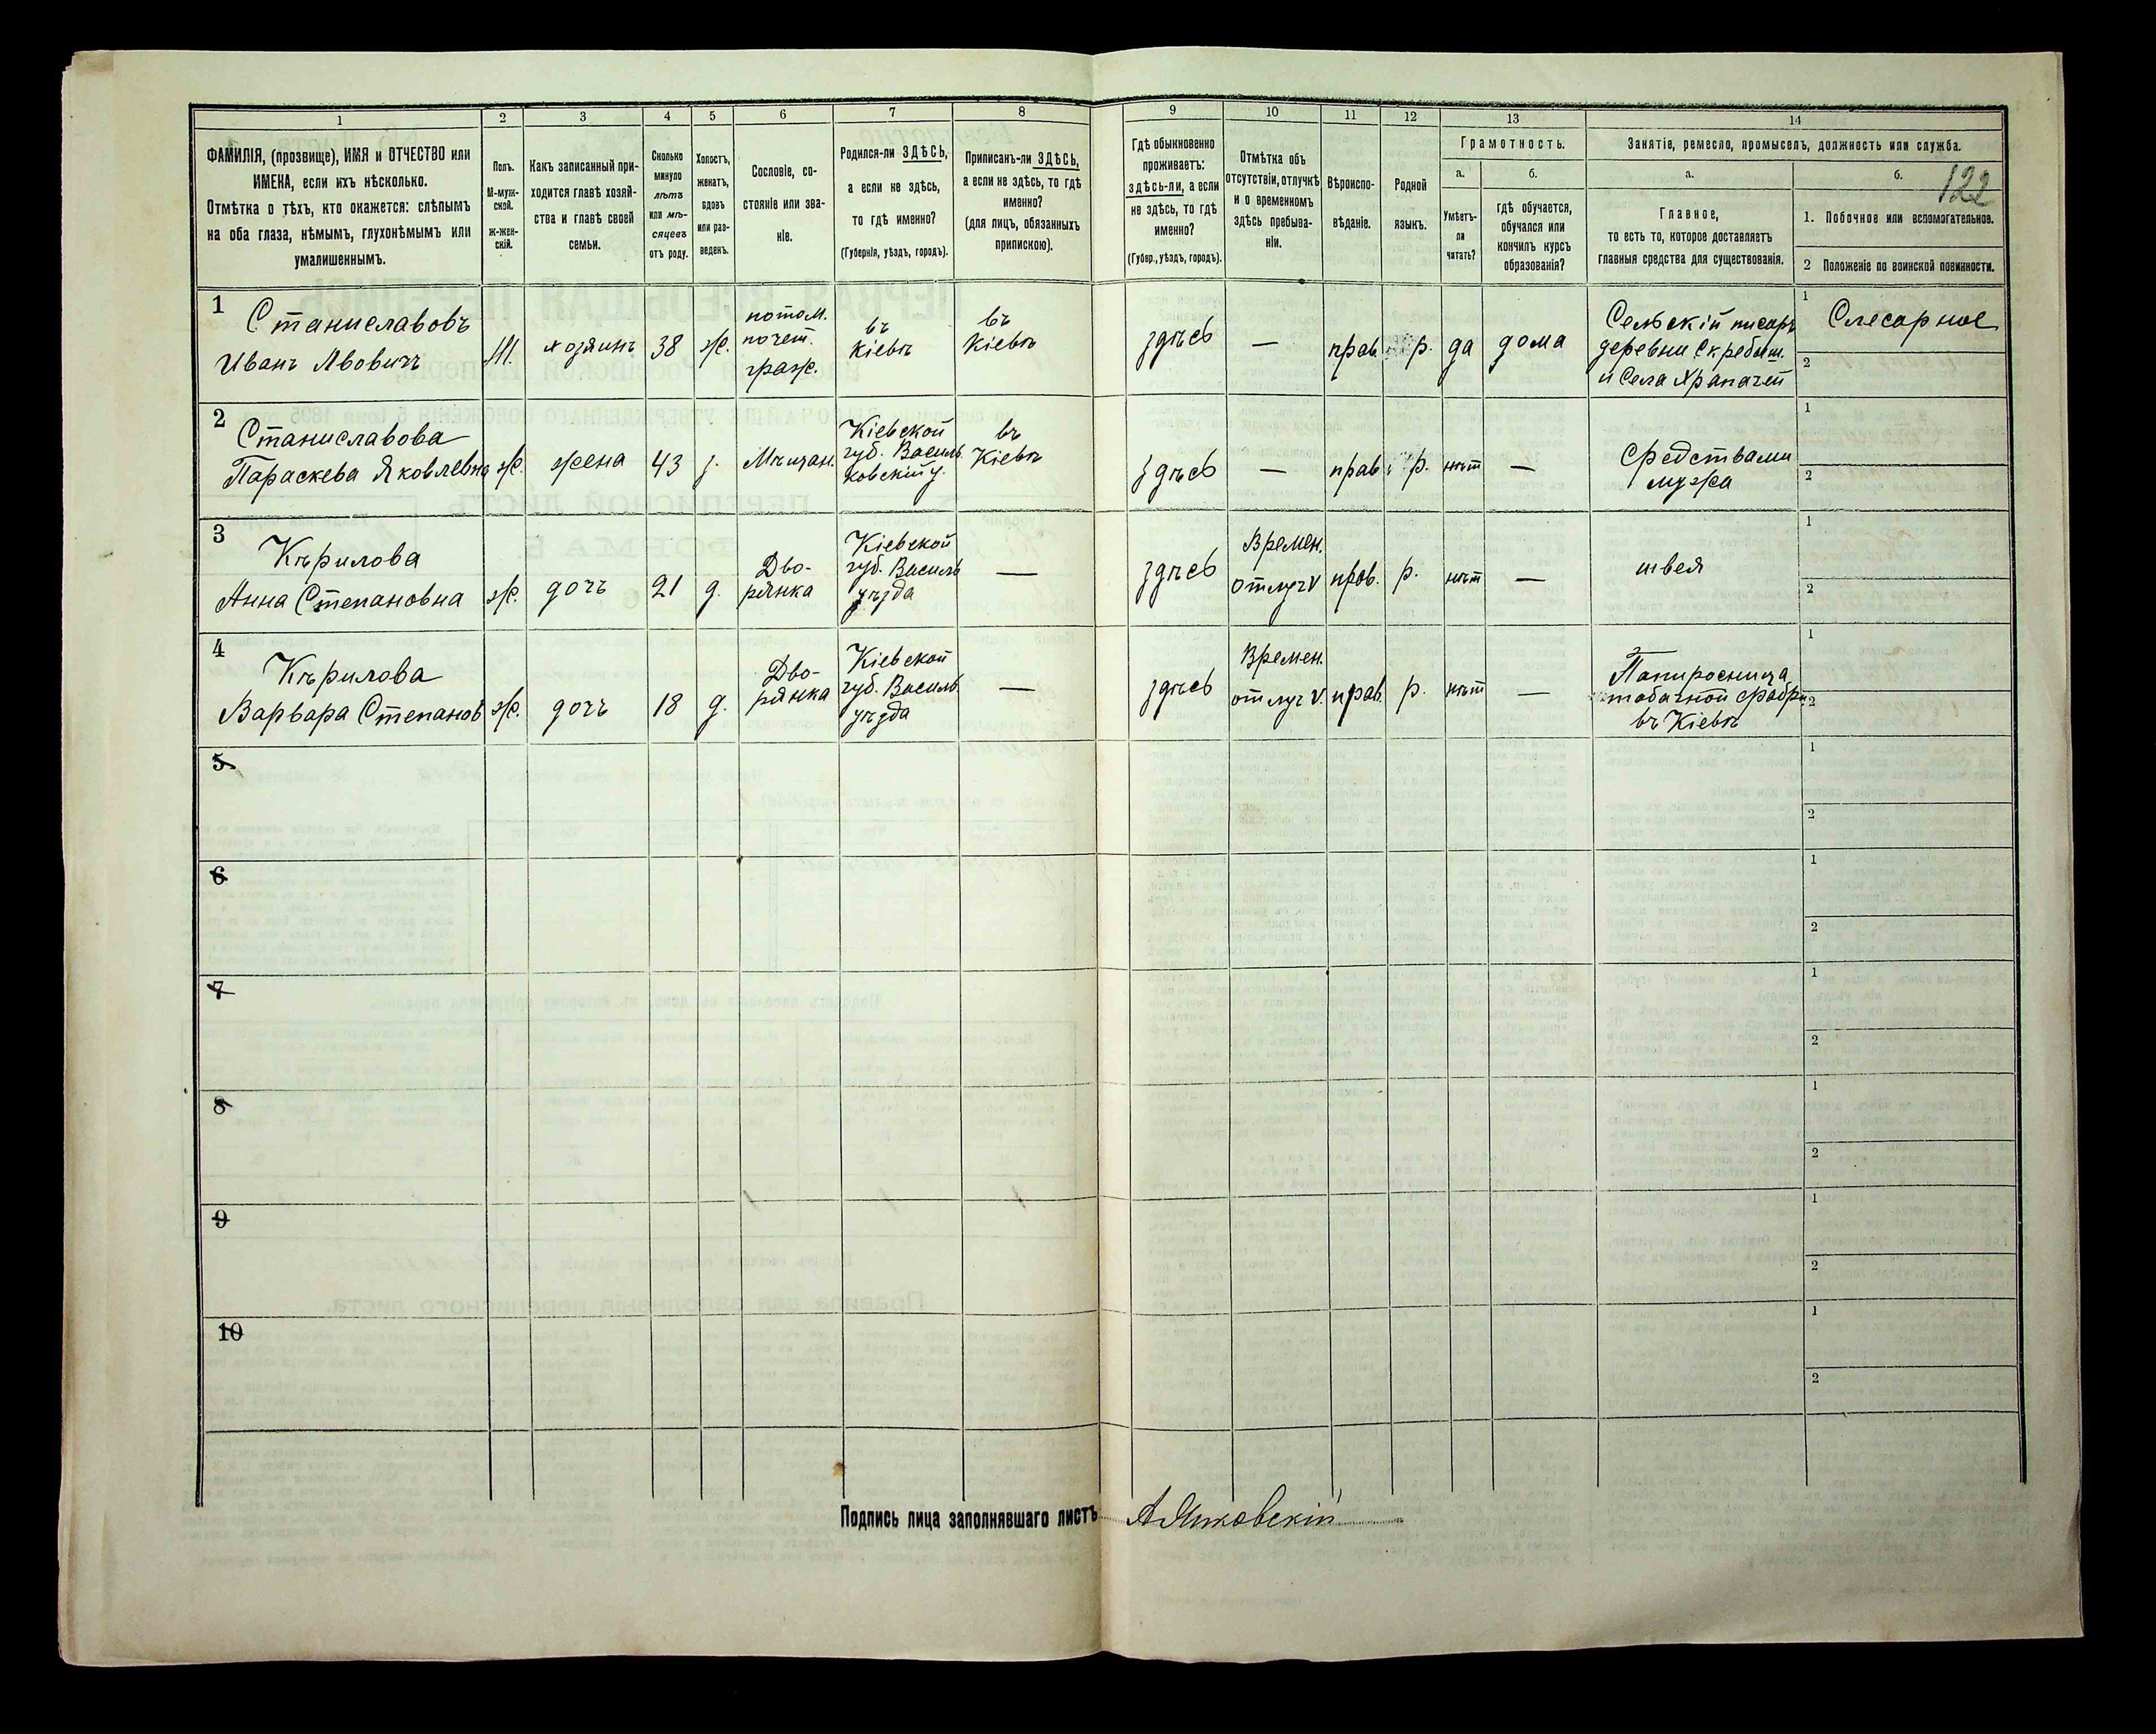 1
2
3
4
5
6
7
8
9
10
11
12
13
14
ФАМИЛІЯ, (прозвище), ИМЯ и ОТЧЕСТВО или
ИМЕНА, если ихъ нѣсколько.
Отмѣтка о тѣхъ, кто окажется: слѣпымъ
на оба глаза, нѣмымъ, глухонѣмымъ или
умалишеннымъ.
Полъ.
М-муж-
ской.
ж-жен-
скій.
Какъ записанный при-
ходится главѣ хозяй-
ства и главѣ своей
семьи.
Сколько
минуло
лѣтъ
или мѣ-
сяцевъ
отъ роду.
Холостъ,
женатъ,
вдовъ
или раз-
веденъ.
Сословіе, со-
стояніе или зва-
ніе.
Родился-ли ЗДѢСЬ,
а если не здѣсь,
то гдѣ именно?
(Губернія, уѣздъ, городъ).
Приписанъ-ли ЗДѢСЬ,
а если не здѣсь, то гдѣ
именно?
(для лицъ, обязанныхъ
припискою).
Гдѣ обыкновенно
проживаетъ:
здѣсь-ли, а если
не здѣсь, то гдѣ
именно?
(Губер., уѣздъ, городъ).
Отмѣтка объ
отсутствіи, отлучкѣ
и о временномъ
здѣсь пребыва-
ніи.
Вѣроиспо-
вѣданіе.
Родной
языкъ.
Грамотность.
а.
Умѣетъ-
ли
читать?
б.
гдѣ обучается,
обучался или
кончилъ курсъ
образованія?
Занятіе, ремесло, промыселъ, должность или служба.
а.
Главное,
то есть то, которое доставляетъ
главныя средства для существованія.
б.
122
1. Побочное или вспомогательное.
2 Положеніе по воинской повинности.
1
Станиславовъ
Иванъ Львовичъ
М.
хозяинъ
38
ж.
потом.
почет.
граж.
въ
Кіевѣ
въ
Кіевѣ
здѣсь
—
прав.
р.
да
дома
Сельскій писарь
деревни Скребыш.
и Села Храпачей
1
Слесарное
2
2
Станиславова
Параскева Яковлевна
ж.
жена
43
з.
Мѣщан.
Кіевской
губ. Василь
ковскій у.
въ
Кіевѣ
здѣсь
—
прав.
р.
нѣт
—
Средствами
мужа
1
2
3
Кѣрилова
Анна Степановна
ж.
дочь
21
д.
Дво-
рянка
Кіевской
губ. Василь
уѣзда
—
здѣсь
Времен.
отлуч
прав.
р.
нѣт
—
швея
1
2
4
Кѣрилова
Варвара Степанов
ж.
дочь
18
д.
Дво-
рянка
Кіевской
губ. Василь.
уѣзда
—
здѣсь
Времен.
отлуч
прав.
р.
нѣт
—
Папиросница
табачной фабри.
въ Кіевѣ
1
2
5
1
2
6
1
2
7
1
2
8
1
2
9
1
2
10
1
2
Подпись лица заполнявшаго листъ